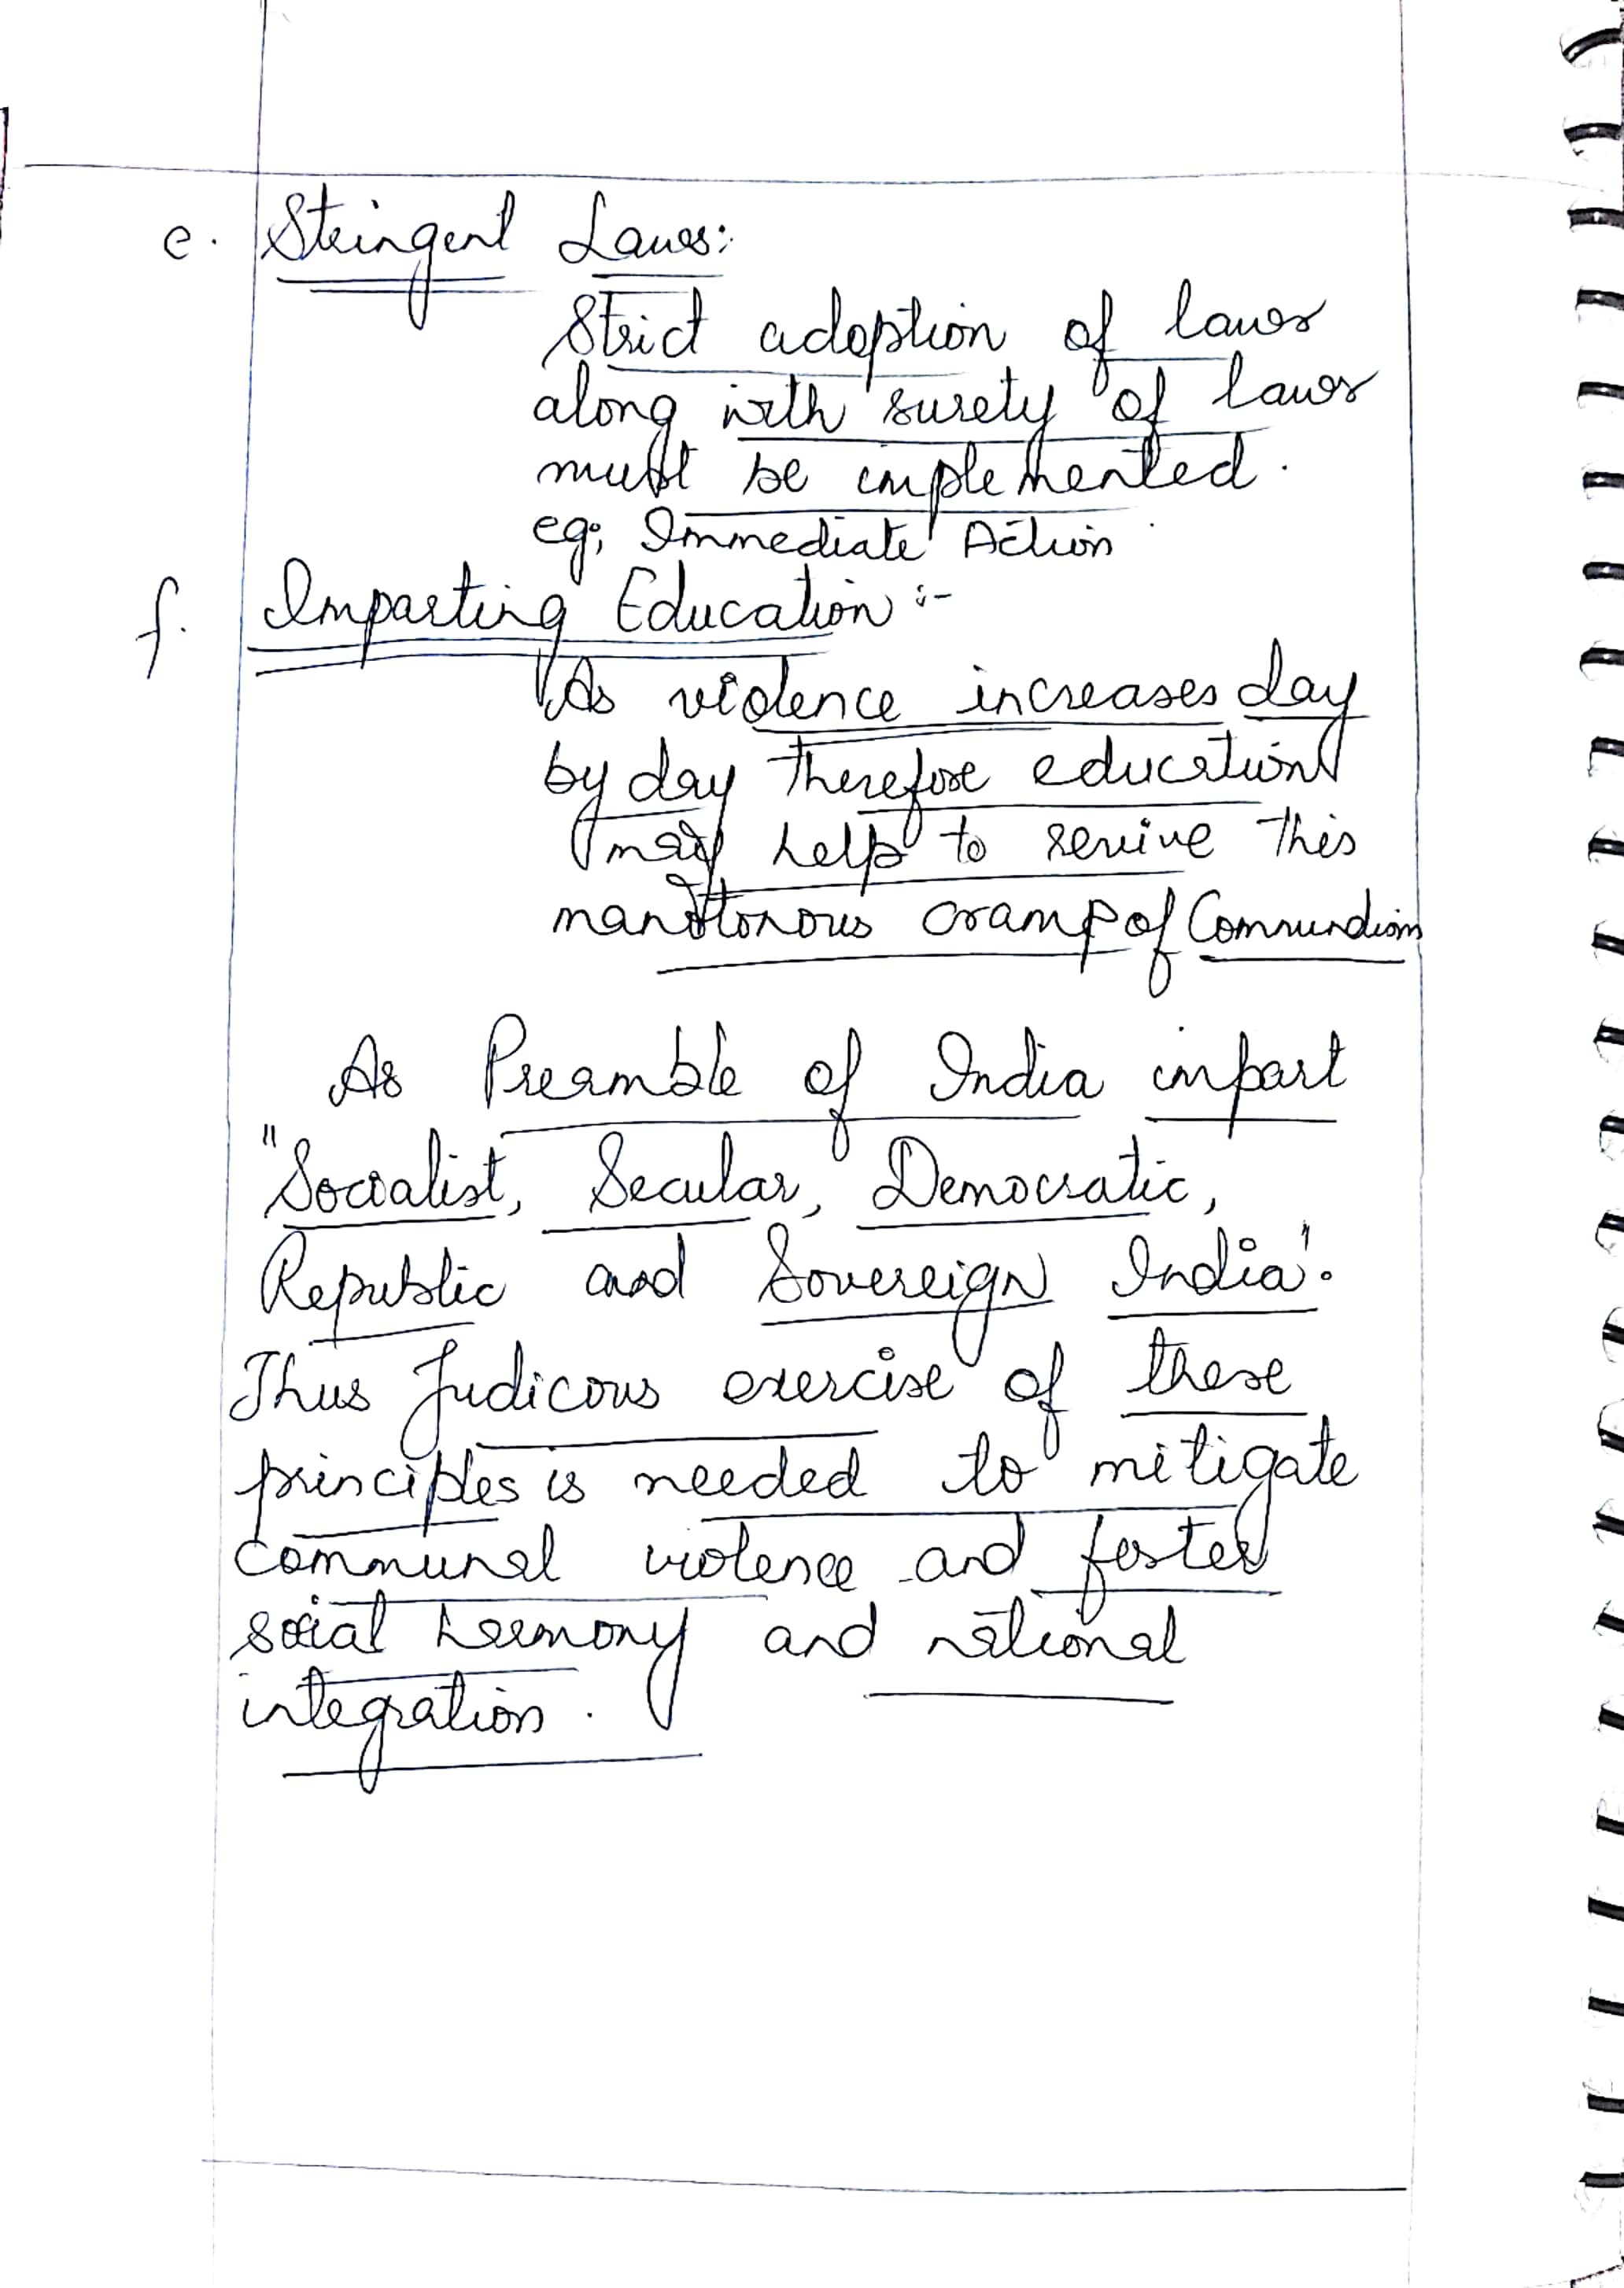 e. Stringent Laws:
Strict adoption of laws
along with surety of laws
must be implemented.
eg; Immediate Action
f. Imparting Education :-
As violence increases day
by day therefore education
may help to revive this
of
As Preamble of India impart
"Socialist, Secular, Democratic,
Republic and Sovereign India".
Thus Judicous exercise of these
principles is needed to mitigate
communal violence and foster
social harmony and national
integration.